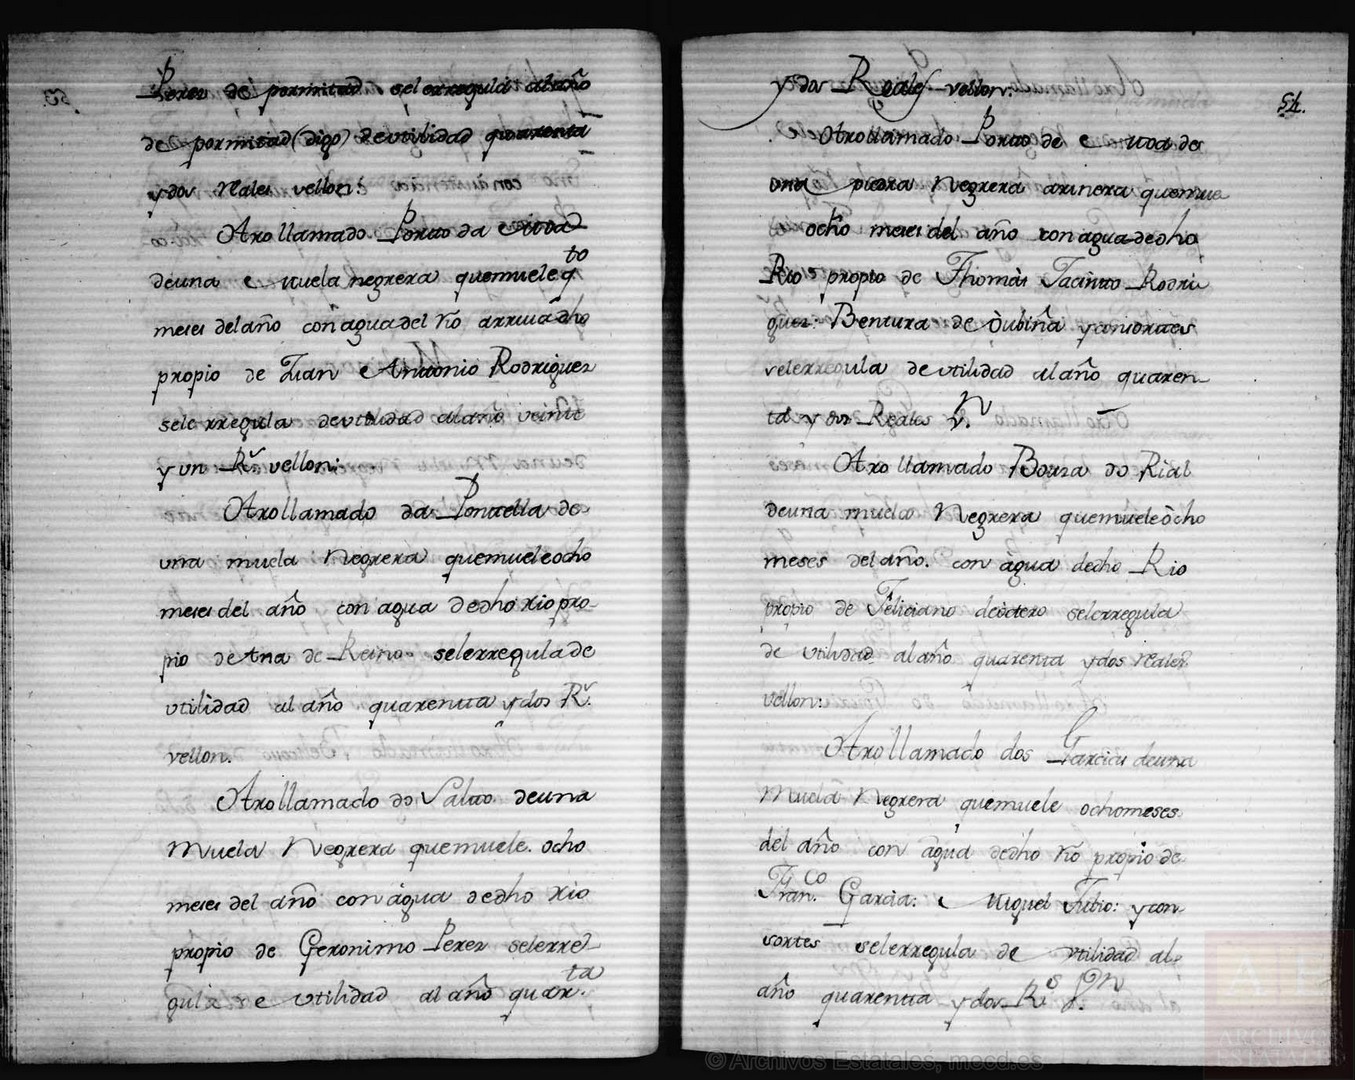 Perez de por mitad selerregula alaño
de pormitad (digo) deutilidad quarenta
ydos Reales vellon:
Otro llamado Porto da
deuna muela negrera quemuele q.to
meses del año con agua del Rio arriua dho
propio de Juan Antonio Rodriguez
selerregula deutilidad alaño veinte
y un R.s vellon:
Otro llamado da Pontella de
una muela negrera quemuele ocho
meses del año con agua dedho rio pro-
pio de de Reino selerregula de
utilidad al año quarentta ydos R.s
vellon.
Otro llamado do Valado deuna
Muela Negrera quemuele ocho
meses del año con água dedho rio
propio de Geronimo Perez selerre-
gula de utilidad al año quar.ta
ydos Reales vellon:
54.
Otro llamado Porto de de
una piedra Negrera arinera quemue
ocho meses del año con agua dedho
Rio propio de Thomás Jacinto Rodri
guez: Bentura de Oubiña
selerregula deutilidad al año quaren-
ta y dos Reales V.n
Otro llamado Bouza do Rial
deuna muela Negrera quemuele òcho
meses del año. con águа dedho Rio
propio de Feliciano deòtero selerregula
de utilidad al año quarenta ydos reales
vellon:
Otro llamado dos Garcias deuna
Muela Negrera quemuele ocho meses
del año con água dedho rio propio de
Fran.co Garcia: Miguel y con-
sortes selerregula de utilidad al
año quarentta ydos R.s V.n
© Archivos Estatales, mecd.es
AE
ARCHIVOS
ESTATALES